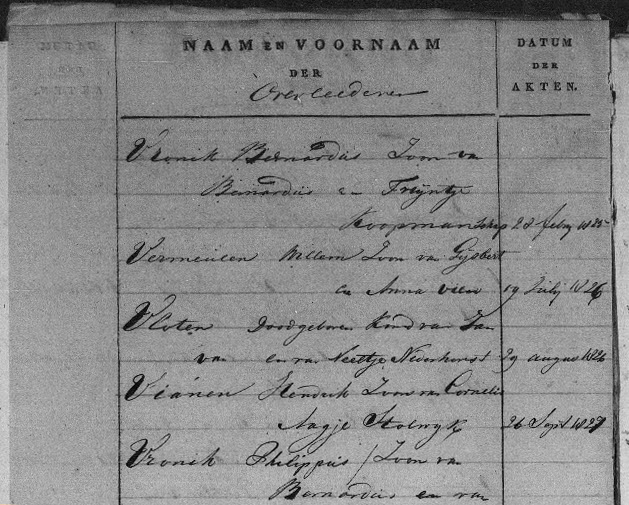 NAAM EN VOORNAAM
DER
Overleedenen
DATUM
DER
AKTEN.
Vronik Bernardus Zoon van
Bernardus en Tryntje
Koopmanschap 28 febry 1825
Vermeulen Willem Zoon van Gysbert
en Anna Veen 19 July 1826
Vloten Doodgeboren Kind van Jan
van en van Neeltje Nederhorst 29 augus 1826
Vianen Hendrik Zoon van Cornelis
Aagje Stolwyk 26 Sept 1827
Vronik Philippus / Zoon van
Bernardus en van